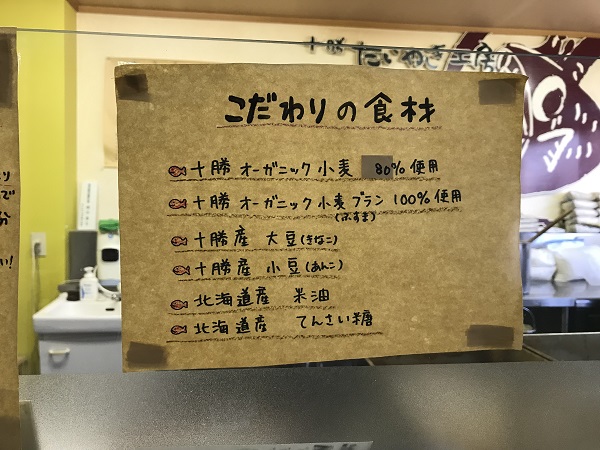 十勝 たいやき工房
こだわりの食材
十勝 オーガニック 小麦 80% 使用
十勝 オーガニック 小麦ブラン 100% 使用
(ふすま)
十勝産 大豆(きなこ)
十勝産 小豆(あんこ)
北海道産 米油
北海道産 てんさい糖
り
で
分
い!